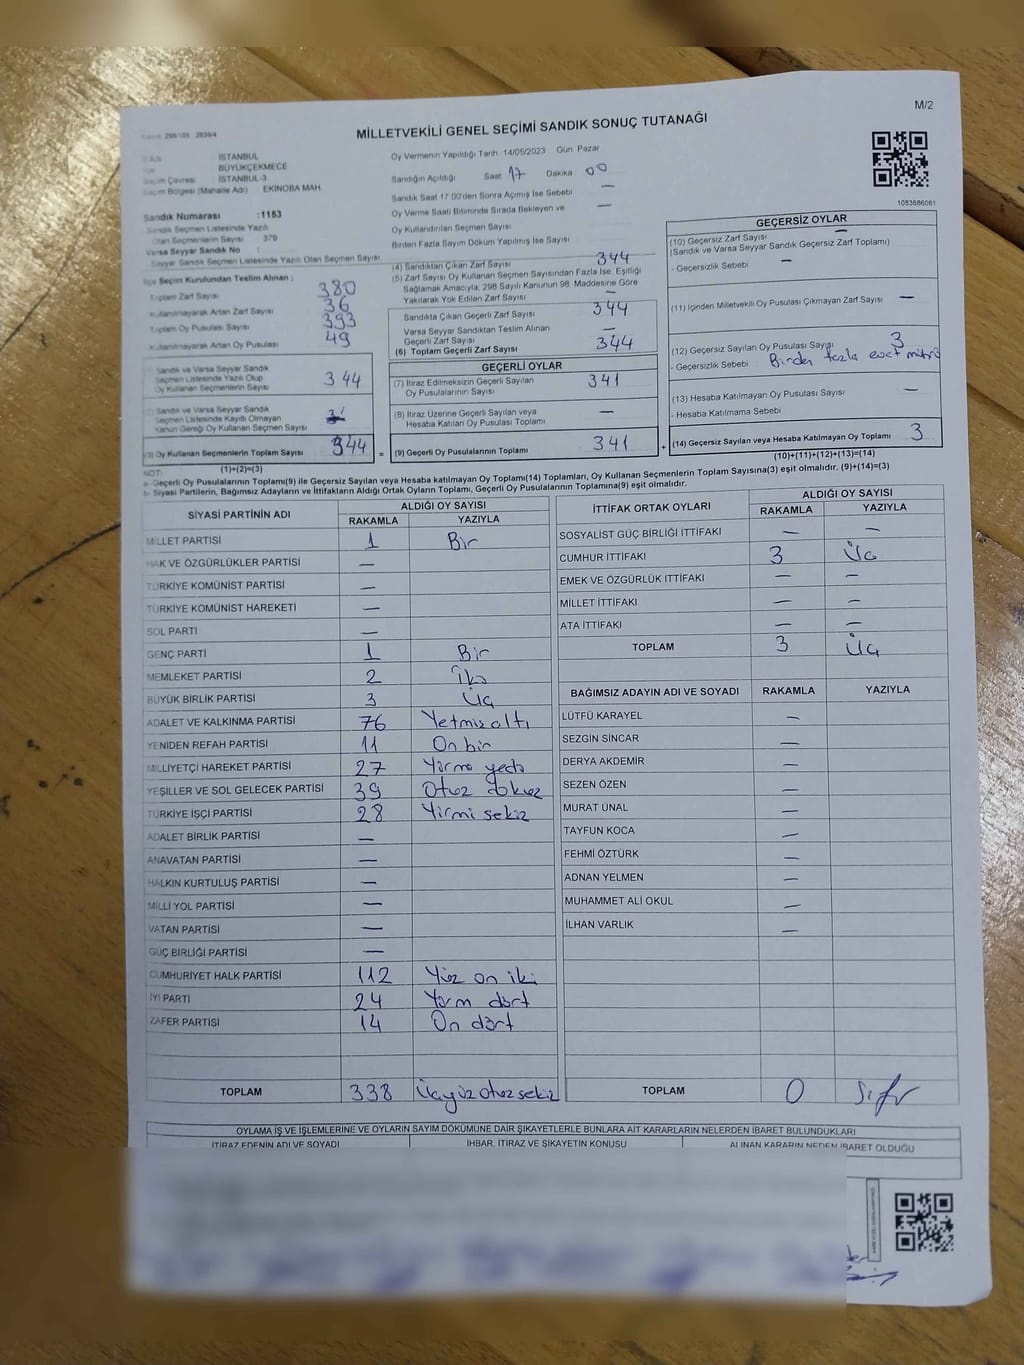 M/2
MİLLETVEKİLİ GENEL SEÇİMİ SANDIK SONUÇ TUTANAĞI
1083686081
İSTANBUL
BÜYÜKÇEKMECE
İSTANBUL-3
Seçim Bölgesi (Mahalle Adı) EKİNOBA MAH
Sandık Numarası :1153
Sandık Seçmen Listesinde Yazılı
Olan Seçmenlerin Sayısı 379
Varsa Seyyar Sandık No :
Seyyar Sandık Seçmen Listesinde Yazılı Olan Seçmen Sayısı
İlçe Seçim Kurulundan Teslim Alınan ;
Toplam Zarf Sayısı 380
Kullanılmayarak Artan Zarf Sayısı 36
Toplam Oy Pusulası Sayısı 393
Kullanılmayarak Artan Oy Pusulası 49
Sandık ve Varsa Seyyar Sandık
Seçmen Listesinde Yazılı Olup
Oy Kullanan Seçmenlerin Sayısı 344
Sandık ve Varsa Seyyar Sandık
Seçmen Listesinde Kayıtlı Olmayan
Kanun Gereği Oy Kullanan Seçmen Sayısı
(3) Oy Kullanan Seçmenlerin Toplam Sayısı 344 =
(1)+(2)=(3)
Oy Vermenin Yapıldığı Tarih 14/05/2023 Gün: Pazar
Sandığın Açıldığı Saat 17 Dakika 00
Sandık Saat 17:00'den Sonra Açımış İse Sebebi —
Oy Verme Saati Bitiminde Sırada Bekleyen ve —
Oy Kullandırılan Seçmen Sayısı
Birden Fazla Sayım Döküm Yapılmış İse Sayısı
(4) Sandıktan Çıkan Zarf Sayısı 344
(5) Zarf Sayısı Oy Kullanan Seçmen Sayısından Fazla İse, Eşitliği
Sağlamak Amacıyla; 298 Sayılı Kanunun 98. Maddesine Göre
Yakılarak Yok Edilen Zarf Sayısı —
Sandıkta Çıkan Geçerli Zarf Sayısı 344
Varsa Seyyar Sandıktan Teslim Alınan
Geçerli Zarf Sayısı —
(6) Toplam Geçerli Zarf Sayısı 344
GEÇERLİ OYLAR
(7) İtiraz Edilmeksizin Geçerli Sayılan
Oy Pusulalarının Sayısı 341
(8) İtiraz Üzerine Geçerli Sayılan veya
Hesaba Katılan Oy Pusulası Toplamı —
(9) Geçerli Oy Pusulalarının Toplamı 341 +
GEÇERSİZ OYLAR
(10) Geçersiz Zarf Sayısı —
(Sandık ve Varsa Seyyar Sandık Geçersiz Zarf Toplamı)
- Geçersizlik Sebebi —
(11) İçinden Milletvekili Oy Pusulası Çıkmayan Zarf Sayısı —
(12) Geçersiz Sayılan Oy Pusulası Sayısı 3
- Geçersizlik Sebebi Birden fazla evet mührü
(13) Hesaba Katılmayan Oy Pusulası Sayısı —
- Hesaba Katılmama Sebebi
(14) Geçersiz Sayılan veya Hesaba Katılmayan Oy Toplamı 3
(10)+(11)+(12)+(13)=(14)
NOT:
a- Geçerli Oy Pusulalarının Toplamı(9) ile Geçersiz Sayılan veya Hesaba katılmayan Oy Toplamı(14) Toplamları, Oy Kullanan Seçmenlerin Toplam Sayısına(3) eşit olmalıdır. (9)+(14)=(3)
b- Siyasi Partilerin, Bağımsız Adayların ve İttifakların Aldığı Ortak Oyların Toplamı, Geçerli Oy Pusulalarının Toplamına(9) eşit olmalıdır.
SİYASİ PARTİNİN ADI ALDIĞI OY SAYISI
RAKAMLA YAZIYLA
MİLLET PARTİSİ 1 Bir
HAK VE ÖZGÜRLÜKLER PARTİSİ —
TÜRKİYE KOMÜNİST PARTİSİ —
TÜRKİYE KOMÜNİST HAREKETİ —
SOL PARTİ —
GENÇ PARTİ 1 Bir
MEMLEKET PARTİSİ 2 İki
BÜYÜK BİRLİK PARTİSİ 3 Üç
ADALET VE KALKINMA PARTİSİ 76 Yetmiş altı
YENİDEN REFAH PARTİSİ 11 On bir
MİLLİYETÇİ HAREKET PARTİSİ 27 Yirmi yedi
YEŞİLLER VE SOL GELECEK PARTİSİ 39 Otuz dokuz
TÜRKİYE İŞÇİ PARTİSİ 28 Yirmi sekiz
ADALET BİRLİK PARTİSİ —
ANAVATAN PARTİSİ —
HALKIN KURTULUŞ PARTİSİ —
MİLLİ YOL PARTİSİ —
VATAN PARTİSİ —
GÜÇ BİRLİĞİ PARTİSİ —
CUMHURİYET HALK PARTİSİ 112 Yüz on iki
İYİ PARTİ 24 Yirm dört
ZAFER PARTİSİ 14 On dört
TOPLAM 338 Üçyüz otuz sekiz
İTTİFAK ORTAK OYLARI ALDIĞI OY SAYISI
RAKAMLA YAZIYLA
SOSYALİST GÜÇ BİRLİĞİ İTTİFAKI — —
CUMHUR İTTİFAKI 3 Üç
EMEK VE ÖZGÜRLÜK İTTİFAKI — —
MİLLET İTTİFAKI — —
ATA İTTİFAKI — —
TOPLAM 3 Üç
BAĞIMSIZ ADAYIN ADI VE SOYADI RAKAMLA YAZIYLA
LÜTFÜ KARAYEL —
SEZGİN SİNCAR —
DERYA AKDEMİR —
SEZEN ÖZEN —
MURAT ÜNAL —
TAYFUN KOCA —
FEHMİ ÖZTÜRK —
ADNAN YELMEN —
MUHAMMET ALİ OKUL —
İLHAN VARLIK —
TOPLAM 0 Sıfır
OYLAMA İŞ VE İŞLEMLERİNE VE OYLARIN SAYIM DÖKÜMÜNE DAİR ŞİKAYETLERLE BUNLARA AİT KARARLARIN NELERDEN İBARET BULUNDUKLARI
İTİRAZ EDENİN ADI VE SOYADI İHBAR, İTİRAZ VE ŞİKAYETİN KONUSU ALINAN KARARIN NEDEN İBARET OLDUĞU